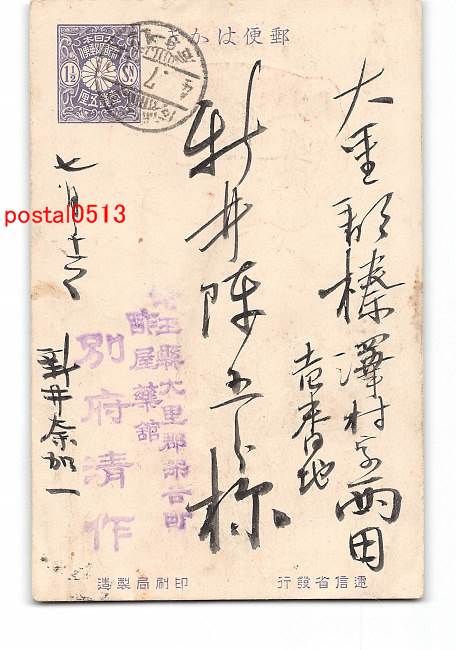 郵便はかき
大里郡榛澤村字西田
壱番地
新井陣五郎様
七月十六
新井奈加一
埼玉縣大里郡寄居町
酢屋藥舘
別府清作
大日本帝國郵便
1½ Sn
壹錢五厘
7
遞信省發行
印刷局製造
postal0513